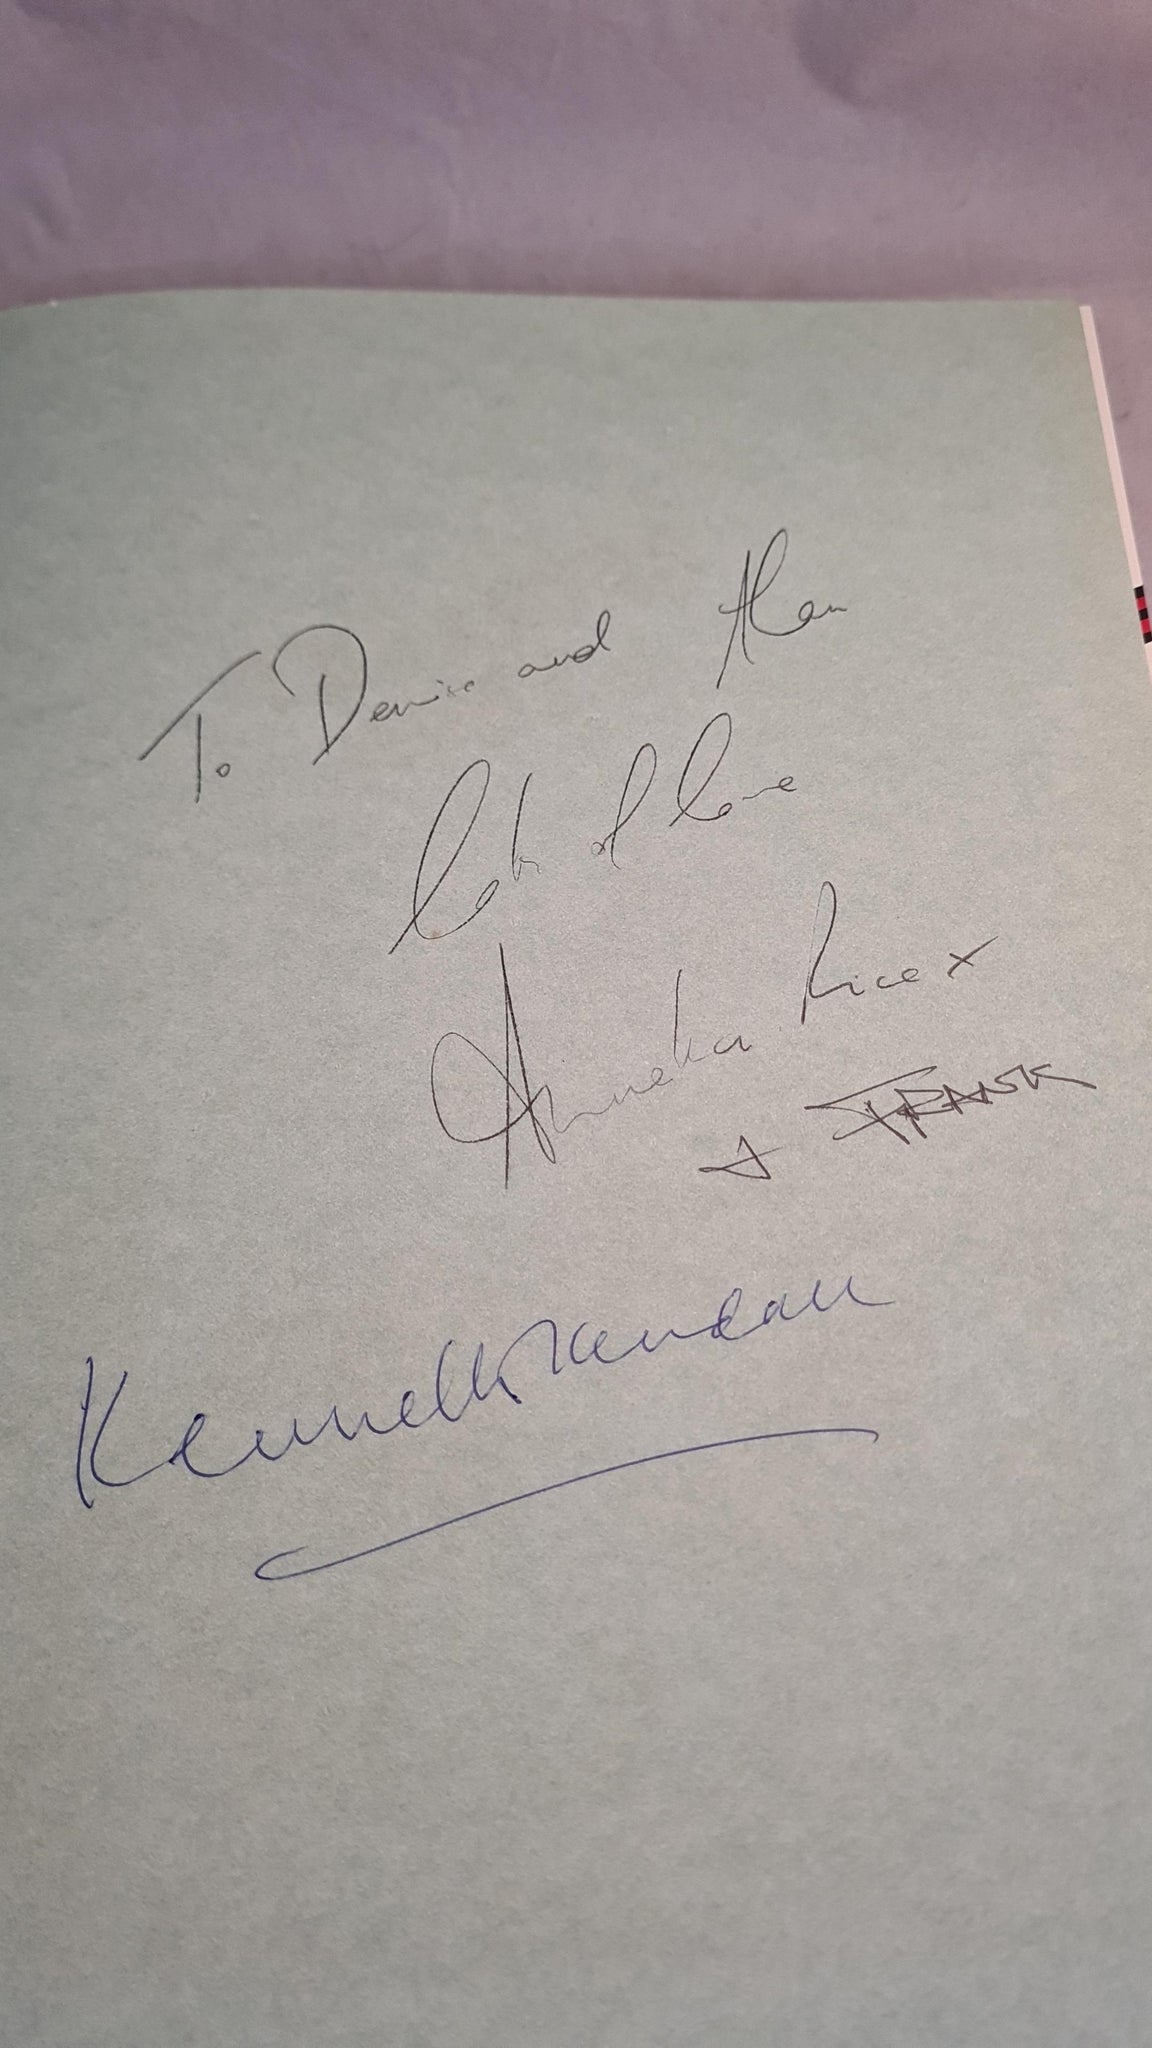 To Denise and Alan
Lots of love
Anneka Rice x
+ FRANK
Kenneth Kendall